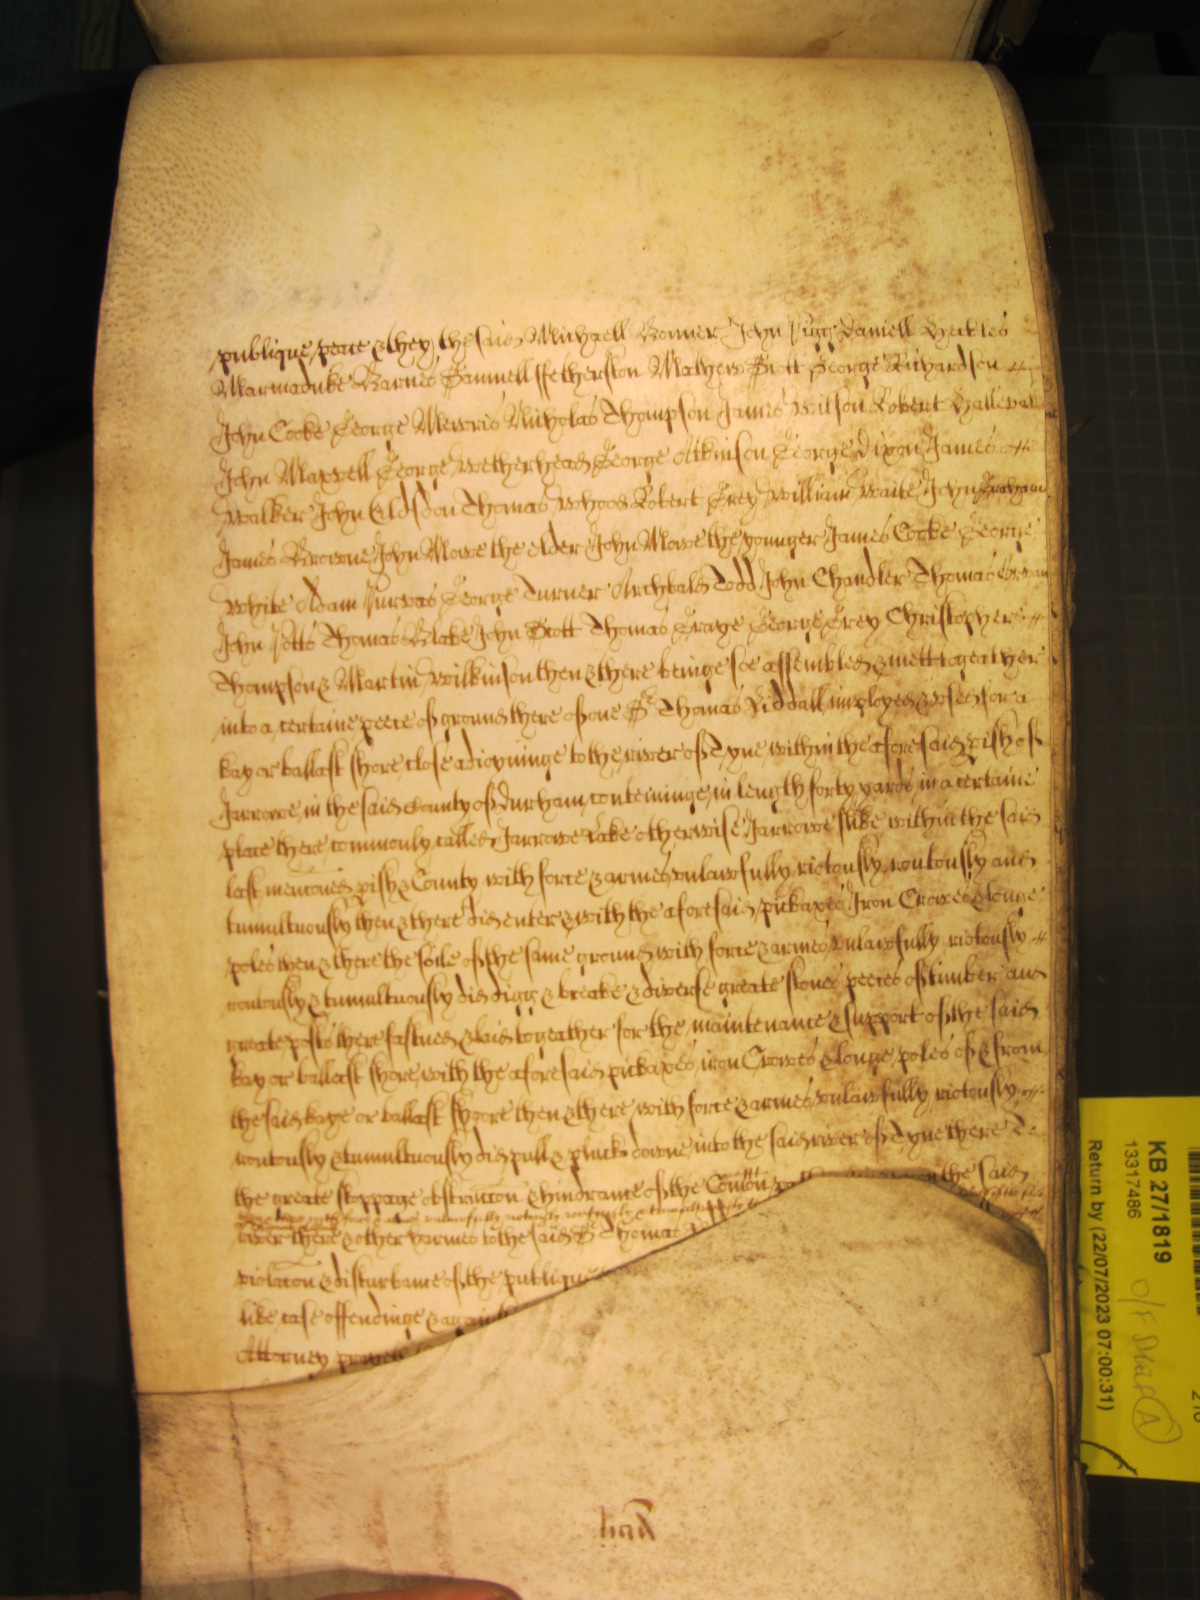 publique peace & they the said Michaell Bonner John Pigg Daniell Heckles
Marmaduke Barnes Samuell ffetherston Mathew Scott George Richardson
John Cooke George Mewris Nicholas Thompson James Wilson Robert
John Maxwell George Wetherhead George Atkinson George Dixon James
Walker John Thomas Whood Robert Grey William Waite John Graham
James Browne John Mowe the elder John Mowe the younger James Cocke George
White Adam Purvas George Turner Archbald Todd John Chandler Thomas
John Potts Thomas Blake John Scott Thomas Graye George Grey Christopher
Thompson & Martin Wilkinson then & there beinge soe assembled & mett togeather
into a certaine peece of ground there of one Sr Thomas Riddall imployed & used for a
kay or ballast shore close adioyninge to the river of Tyne within the aforesaid pish of
Jarrowe in the said County of Durham conteininge in length forty yards in a certaine
place there commonly called Jarrowe Lake otherwise Jarrowe slike within the said
last menconed pish & County with force & armes unlawfully riotously routously and
tumultuously then & there did enter & with the aforesaid pickaxes Iron Crowes & longe
poles then & there the soile of the same ground with force & armes unlawfully riotously
routously & tumultuously did digg & breake & diverse greate stones peeces of timber and
greate posts there fastned & laid togeather for the maintenance & support of the said
kay or ballast shore with the aforesaid pickaxes iron Crowes & longe poles of & from
the said kaye or ballast shoore then & there with force & armes unlawfully riotously
routously & tumultuously did pull & pluck downe into the said river of Tyne there To
the greate stoppage obstruccon & hindrance of the Comon the said
with force & armes unlawfully riotously routously & tumultuously
river there & other harmes to the said Sr Thomas
violacon & disturbance of the publique
like case offendinge & against
Attorney prayeth
KB 27/1819
13317486
Return by (22/07/2023 07:00:31)